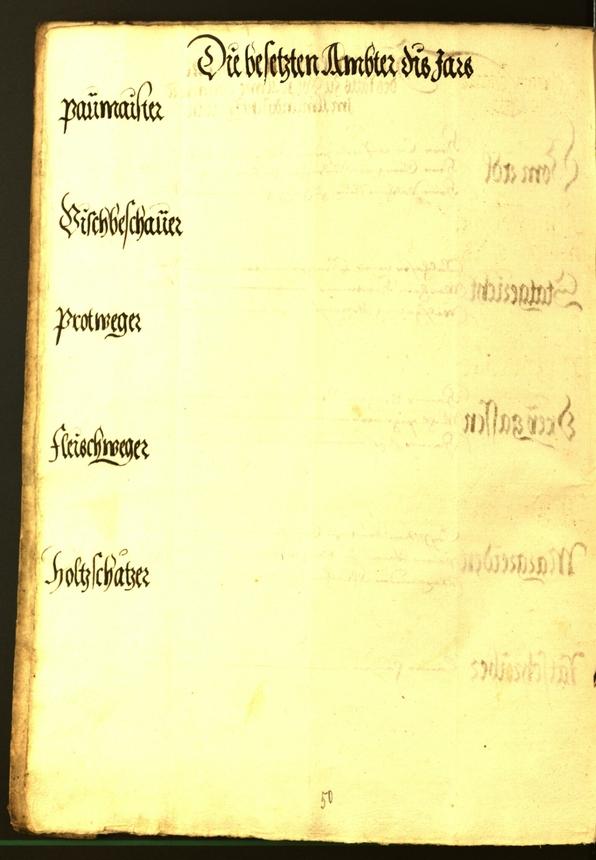 Die besetzten Ambter dis Jars
paumaister
Vischbeschauer
protweger
fleischweger
holtzschätzer
50